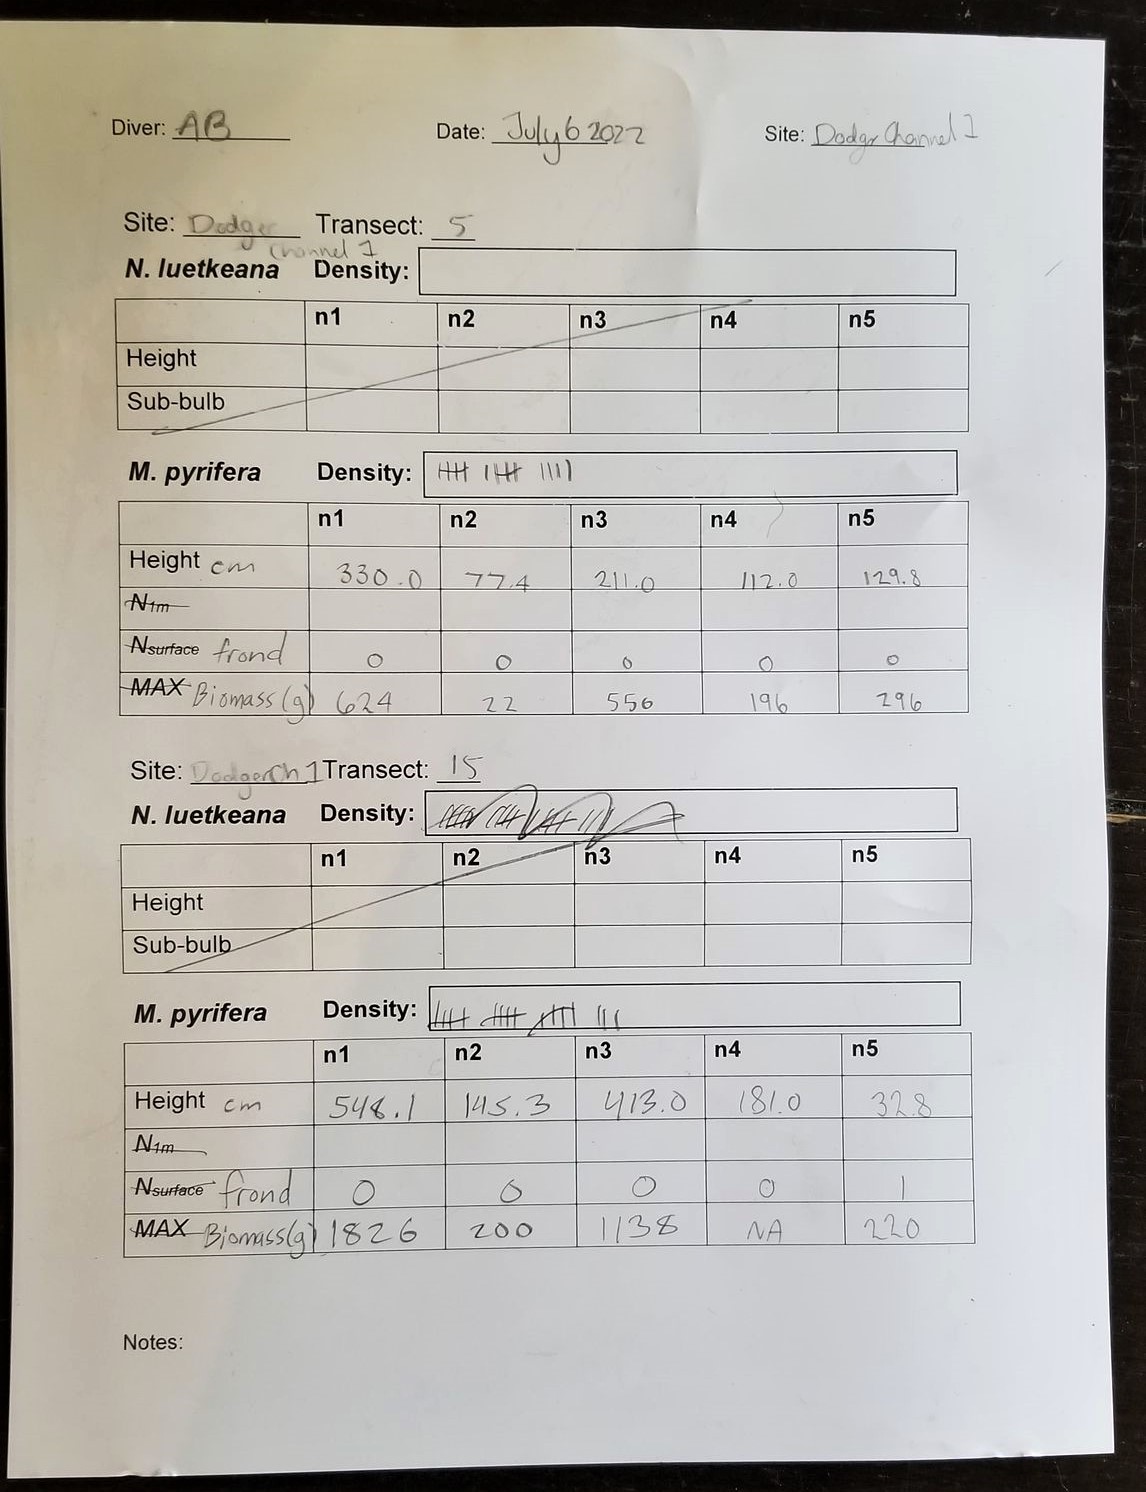 Diver: AB Date: July 6 2022 Site: Dodger Channel 1
Site: Dodger Channel 1 Transect: 5
N. luetkeana Density:
n1 n2 n3 n4 n5
Height
Sub-bulb
M. pyrifera Density: 卌 卌 ||||
n1 n2 n3 n4 n5
Height cm 330.0 77.4 211.0 112.0 129.8
N1m
Nsurface frond 0 0 0 0 0
MAX Biomass (g) 624 22 556 196 296
Site: Dodger Ch 1 Transect: 15
N. luetkeana Density:
n1 n2 n3 n4 n5
Height
Sub-bulb
M. pyrifera Density: 卌 卌 卌 |||
n1 n2 n3 n4 n5
Height cm 548.1 145.3 413.0 181.0 32.8
N1m
Nsurface frond 0 0 0 0 1
MAX Biomass (g) 1826 200 1138 NA 220
Notes: